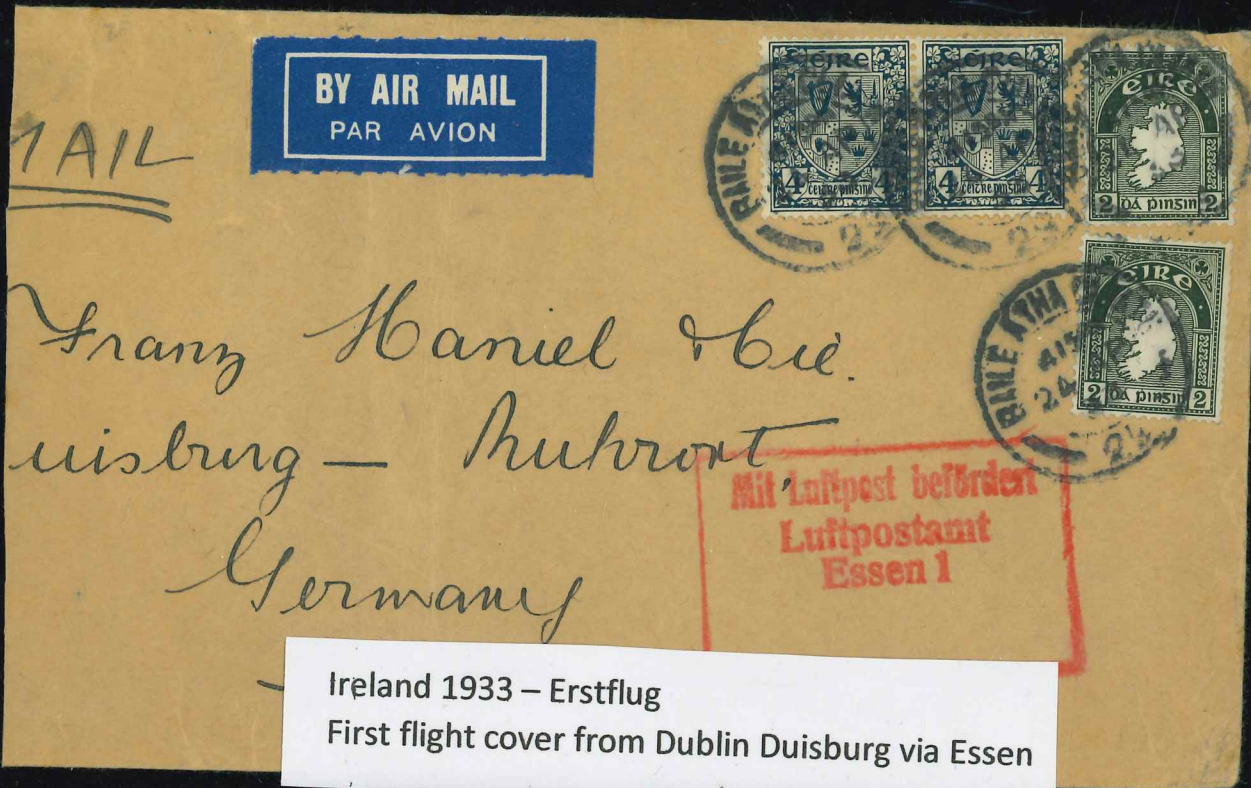 BY AIR MAIL
PAR AVION
MAIL
ÉIRE
4 ceitre pinsin 4
ÉIRE
4 ceitre pinsin 4
ÉIRE
2 dá pinsin 2
ÉIRE
2 dá pinsin 2
BAILE ÁTHA
24
Franz Haniel & Cie.
uisburg — Ruhrort,
Germany
Mit Luftpost befördert
Luftpostamt
Essen 1
Ireland 1933 – Erstflug
First flight cover from Dublin Duisburg via Essen